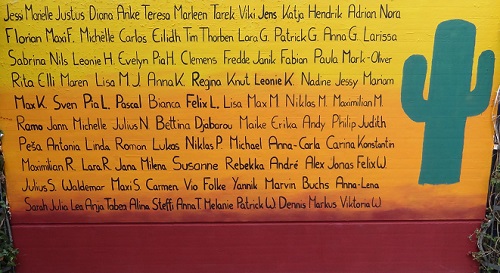 Jessi Marielle Justus Diana Anke Teresa Marleen Tarek Viki Jens Katja Hendrik Adrian Nora
Florian Maxi F. Michelle Carlos Eilidh Tim Thorben Lara G. Patrick G. Anna G. Larissa
Sabrina Nils Leonie H. Evelyn Pia H. Clemens Fredde Janik Fabian Paula Mark-Oliver
Rita Elli Maren Lisa M. J. Anna K. Regina Knut Leonie K. Nadine Jessy Mariam
Max K. Sven Pia L. Pascal Bianca Felix L. Lisa Max M. Niklas M. Maximilian M.
Ramo Jann Michelle Julius N. Bettina Djabarou Maike Erika Andy Philip Judith
Peša Antonia Linda Roman Lukas Niklas P. Michael Anna-Carla Carina Konstantin
Maximilian R. Lara R. Jana Milena Susanne Rebekka André Alex Jonas Felix W.
Julius S. Waldemar Maxi S. Carmen Vio Folke Yannik Marvin Buchs Anna-Lena
Sarah Julia Lea Anja Tabea Alina Steffi Anna T. Melanie Patrick W. Dennis Markus Viktoria W.